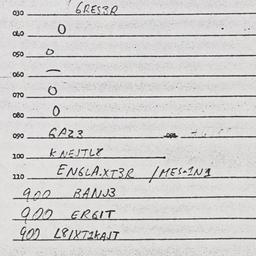 030 6RES3R
040 O
050 O
060 —
070 O
080 O
090 GAZ3
100 KNEJTL8
110 ENGLA.XT3R /MES-1N1
900 BANJ3
900 ERGIT
900 L8IXT1KAJT